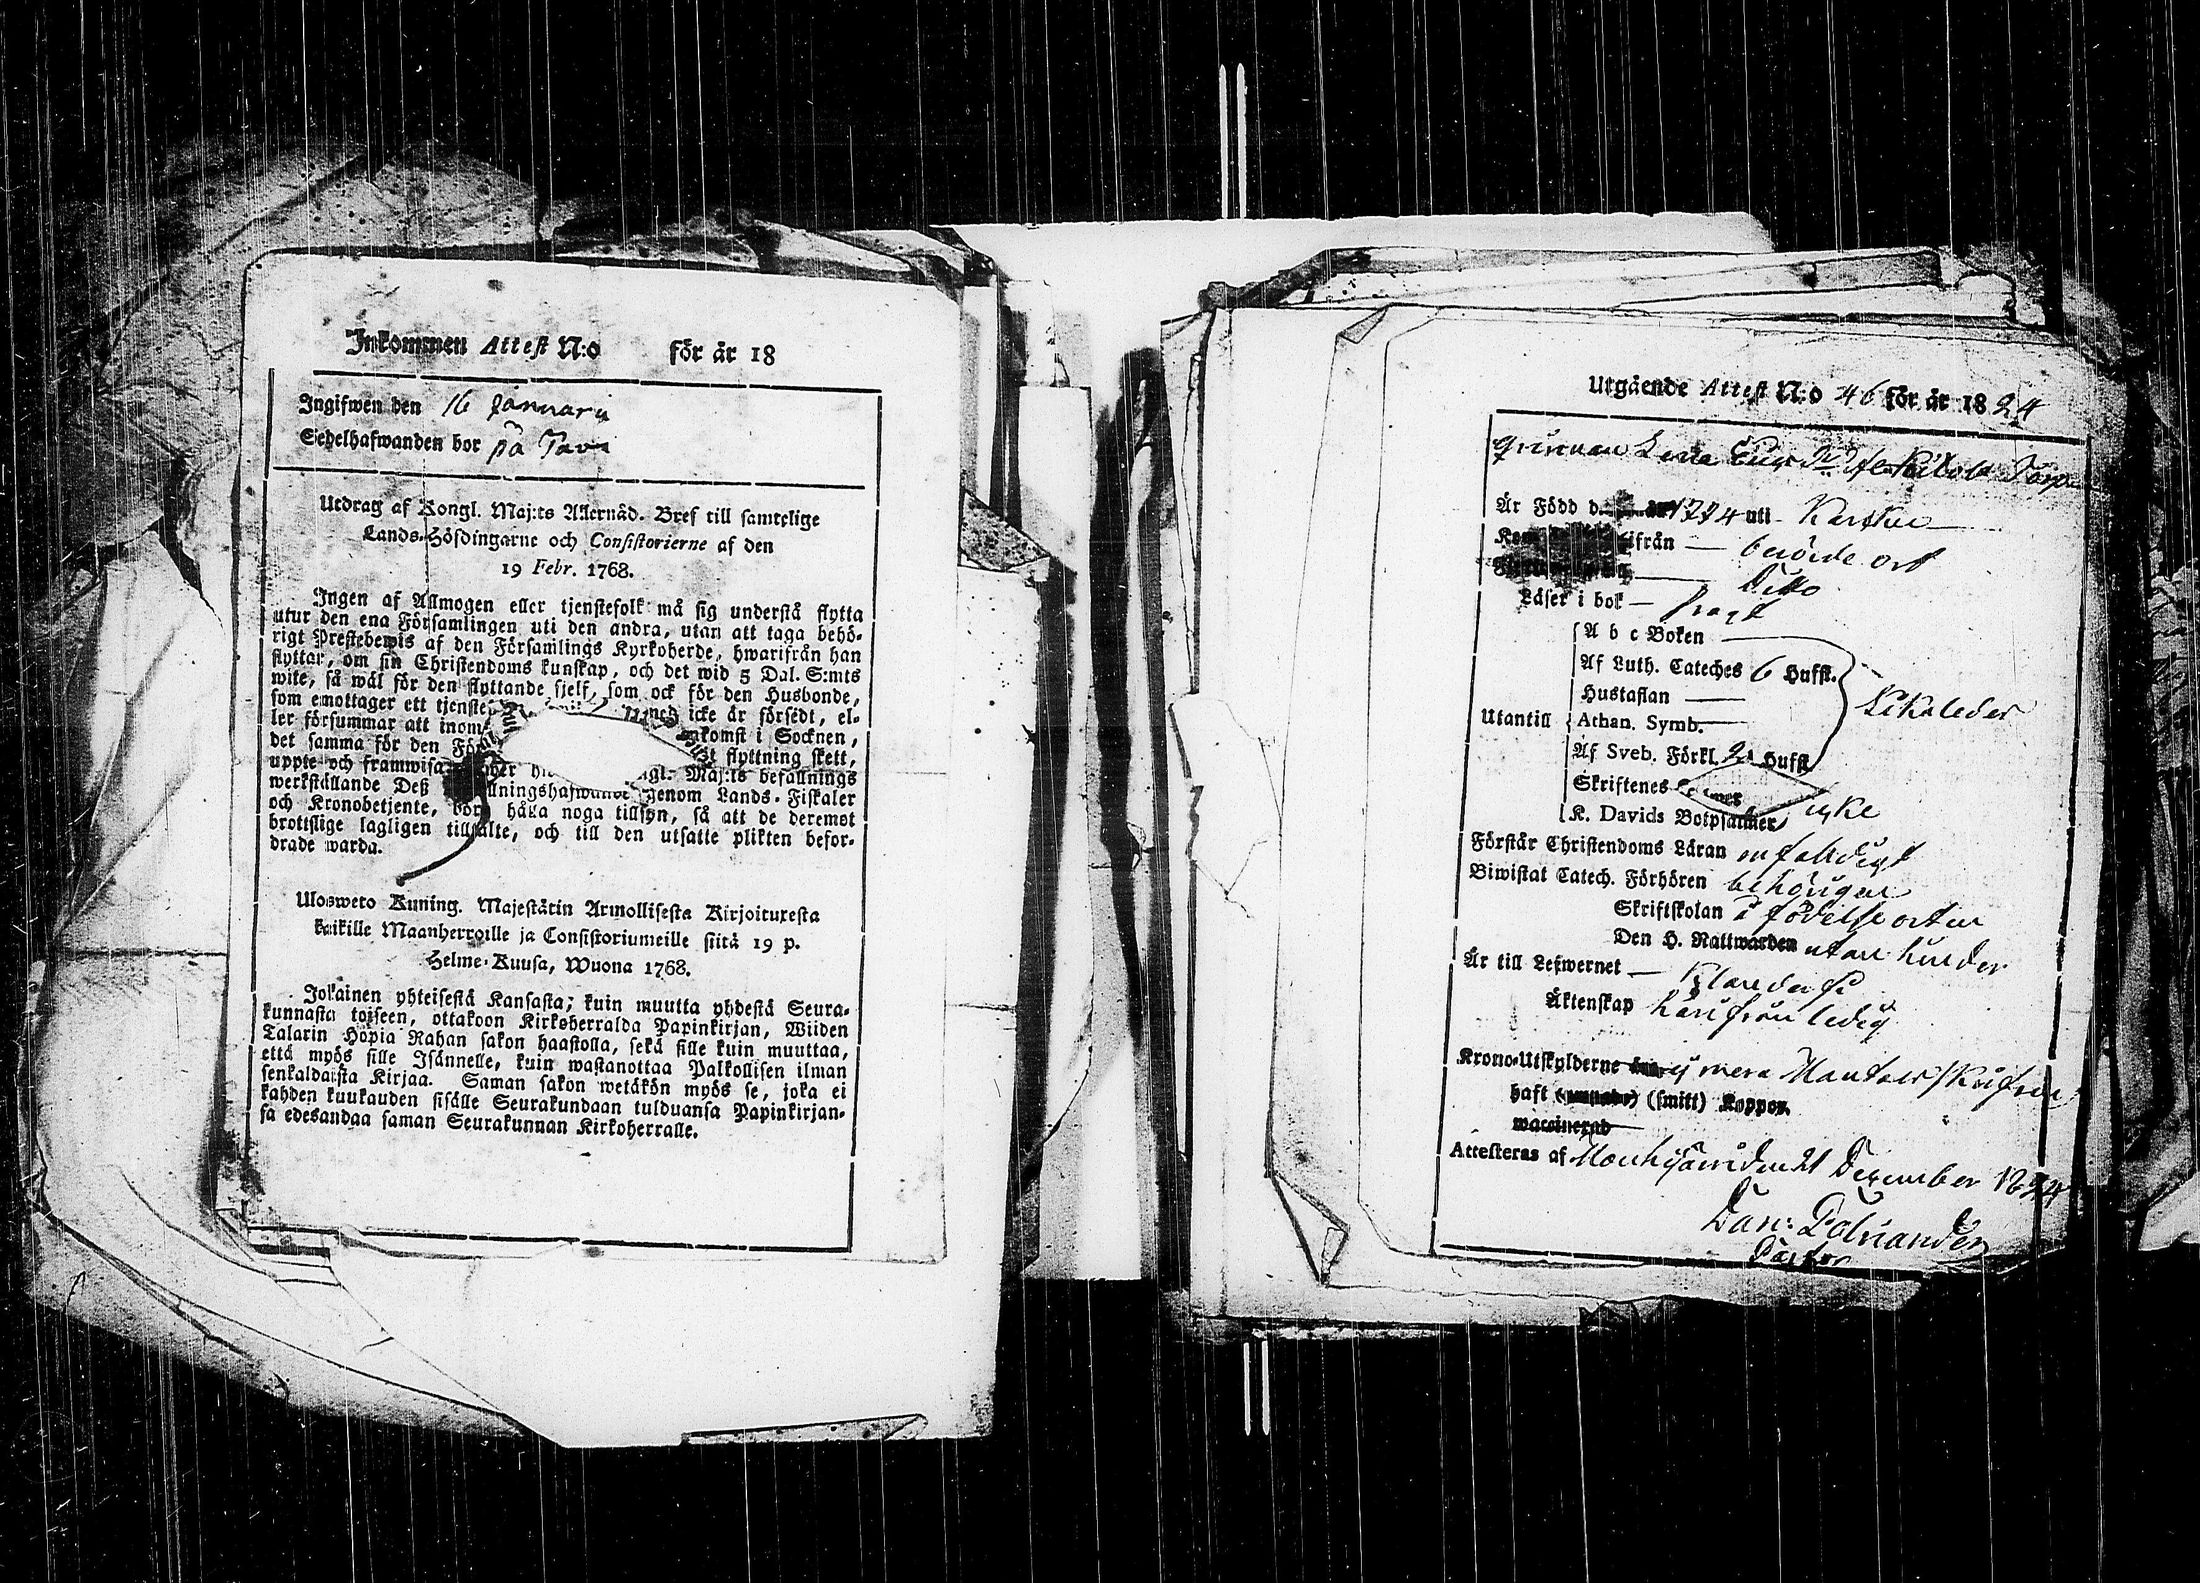 Inkommen Attest N:o för år 18
Ingifwen den 16 Januarii
Sedelhafwanden bor på
Utdrag af Kongl. Maj:ts Allernåd. Bref till samtelige
Lands-Höfdingarne och Consistorierne af den
19 Febr. 1768.
Ingen af Allmogen eller tjenstefolk må sig understå flytta
utur den ena Församlingen uti den andra, utan att taga behö-
rigt Prestebewis af den Församlings Kyrkoherde, hwarifrån han
flyttar, om sin Christendoms kunskap, och det wid 5 Dal. S:mts
wite, så wäl för den flyttande sjelf, som ock för den Husbonde,
som emottager ett icke är försedt, el-
ler försummar att inom i Socknen,
det samma för den flyttning skett,
uppte och framwisa Maj:ts befallnings
werkställande Deß genom Lands-Fiskaler
och Kronobetjente, hålla noga tillsyn, så att de deremot
brottslige lagligen tilltalte, och till den utsatte plikten befor-
drade warda.
Ulosweto Kuning. Majestätin Armollisesta Kirjoituxesta
kaikille Maanherroille ja Consistoriumeille siitä 19 p.
Helme-Kuusa, Wuona 1768.
Jokainen yhteisestä Kansasta; kuin muutta yhdestä Seura-
kunnasta toiseen, ottakoon Kirkoherralda Papinkirjan, Wiiden
Talarin Höpia Rahan sakon haastolla, sekä sille kuin muuttaa,
että myös sille Isännelle, kuin wastanottaa Palkollisen ilman
senkaldaista Kirjaa. Saman sakon wetäkön myös se, joka ei
kahden kuukauden sisälle Seurakundaan tulduansa Papinkirjan-
sa edesandaa saman Seurakunnan Kirkoherralle.
Utgående Attest N:o 46 för år 1824
Lena
Är Född d. 1774 uti
ifrån — berörde ort
— Ditto
Läser i bok —
A b c Boken —
Af Luth. Cateches 6 Hufst.
Hustaflan —
Utantill Athan. Symb. —
Af Sveb. Förkl. 2 Hufst.
Skriftenes
K. Davids Botpsalmer icke
Förstår Christendoms Läran enfaldigt
Biwistat Catech. Förhören behörigen
Skriftskolan i födelse orten
Den H. Nattwarden utan hinder
Är till Lefwernet — klanderfri
Äktenskap härifrån ledig
Krono-Utskylderne ej mera
haft (smitt) Koppor.
waccinerad
Attesteras af den 21 December 1824
Dan: Polviander
Pastor